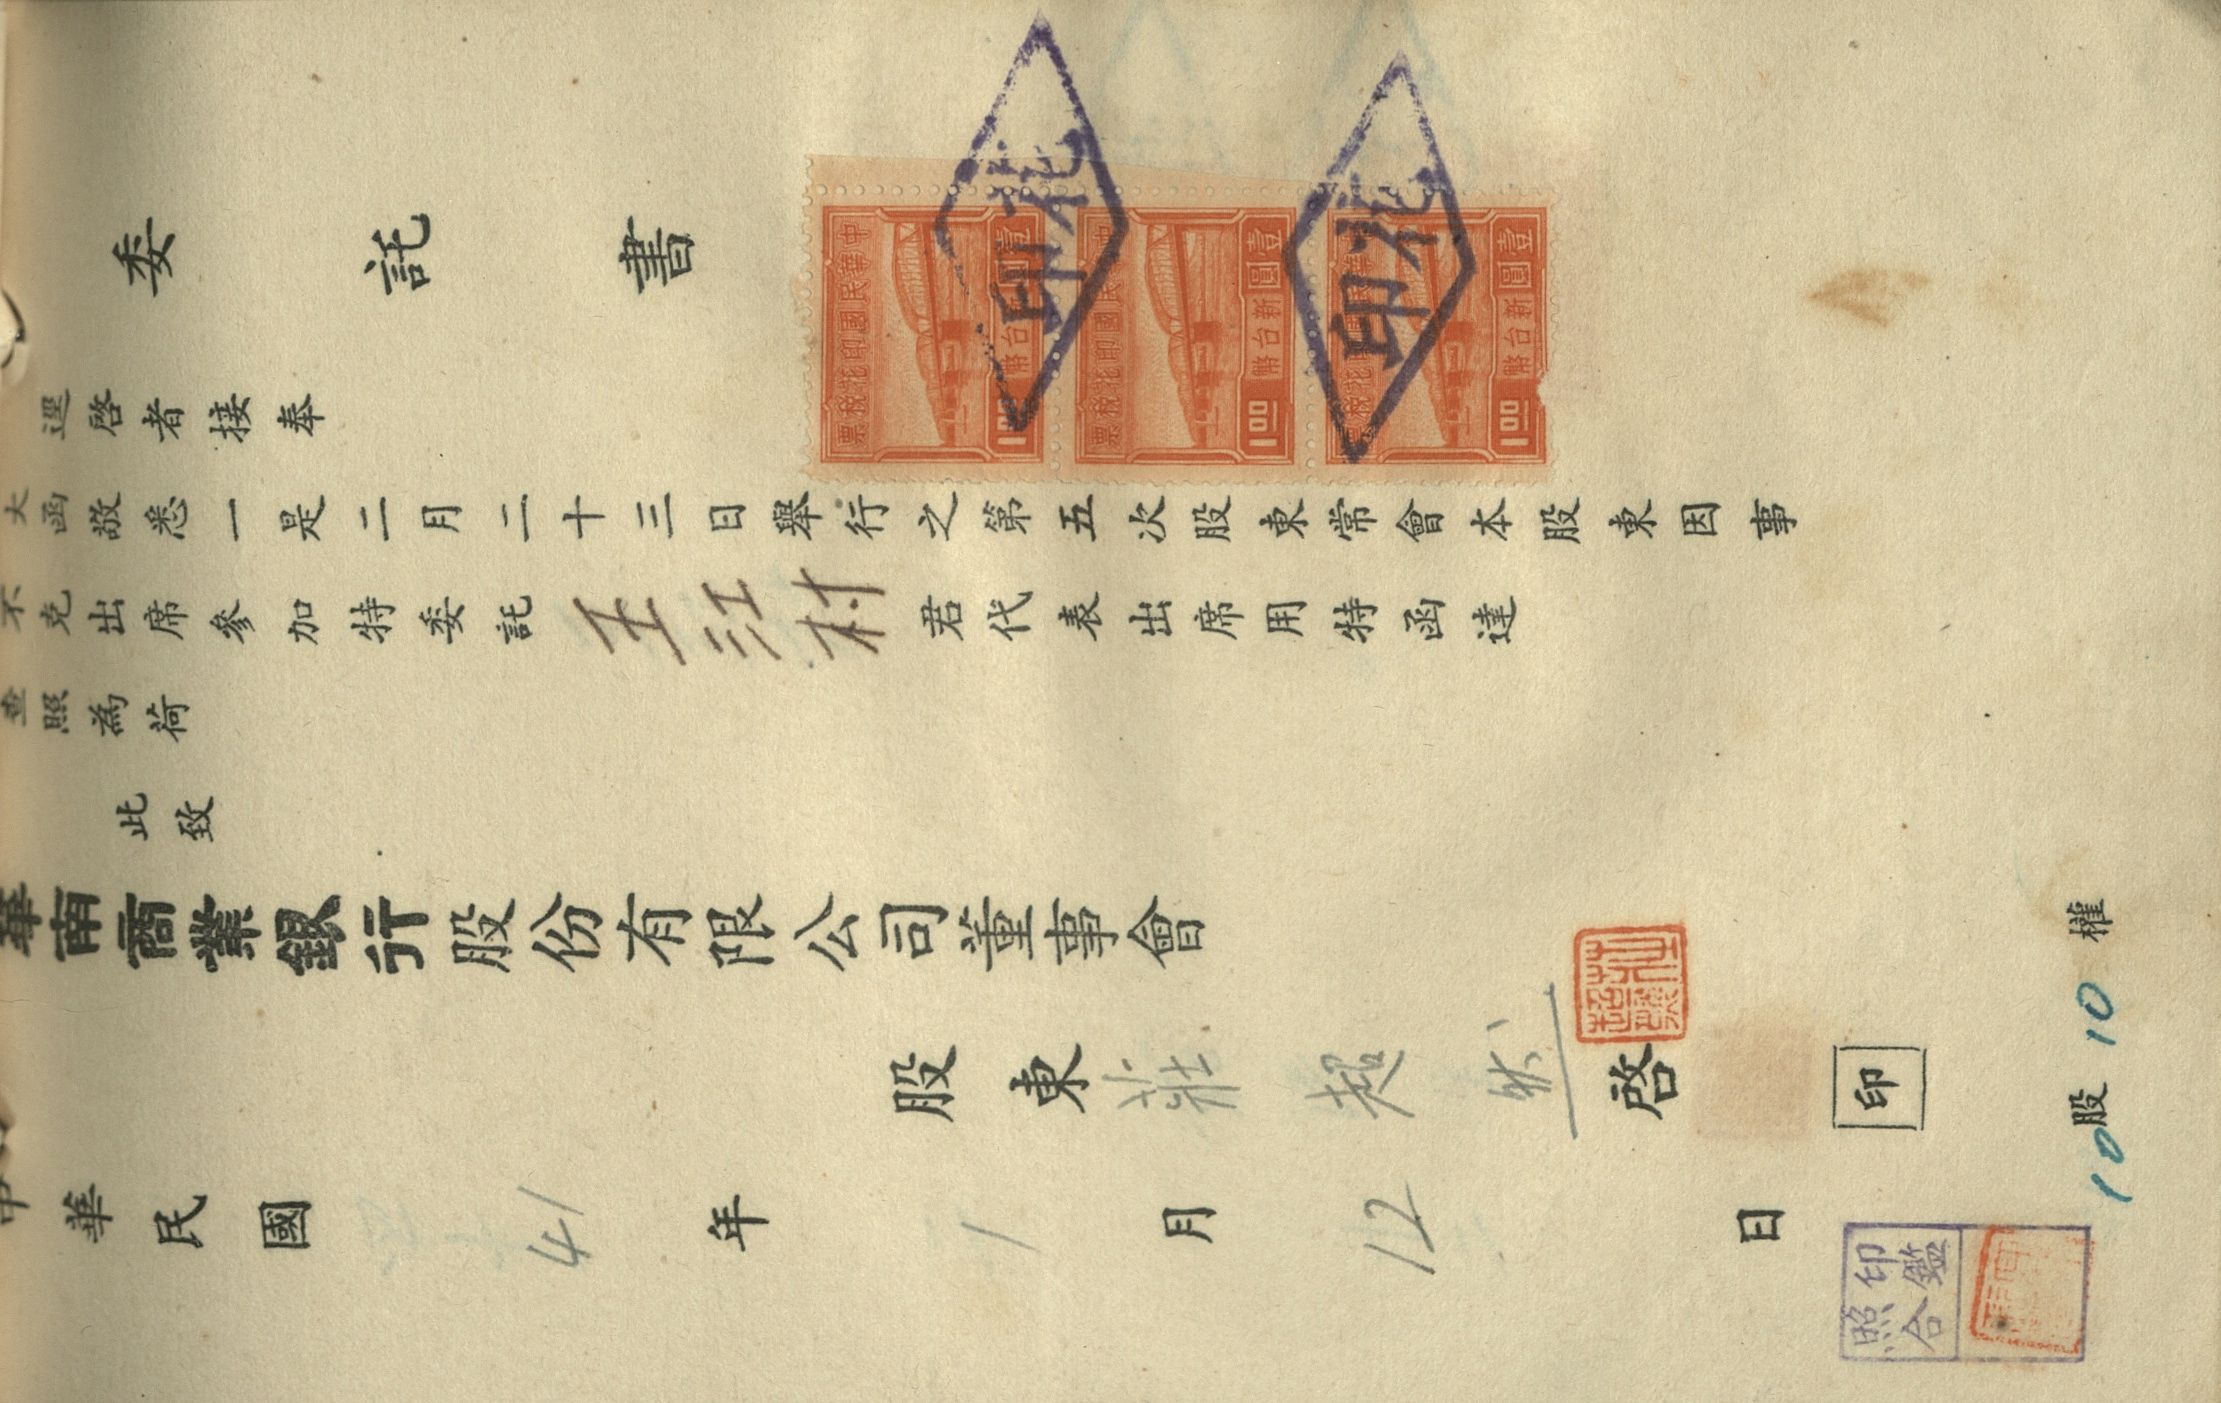 委託書
逕啓者接奉
大函敬悉一是二月二十三日舉行之第五次股東常會本股東因事
不克出席參加特委託王江村君代表出席用特函達
查照為荷
此致
華南商業銀行股份有限公司董事會
股東莊超然啓
印
中華民國41年1月12日
10股10權
印鑑
照合
中華民國印花稅票
壹圓
新台幣
1.00
中華民國印花稅票
壹圓
新台幣
1.00
壹圓
新台幣
1.00
印花
印花